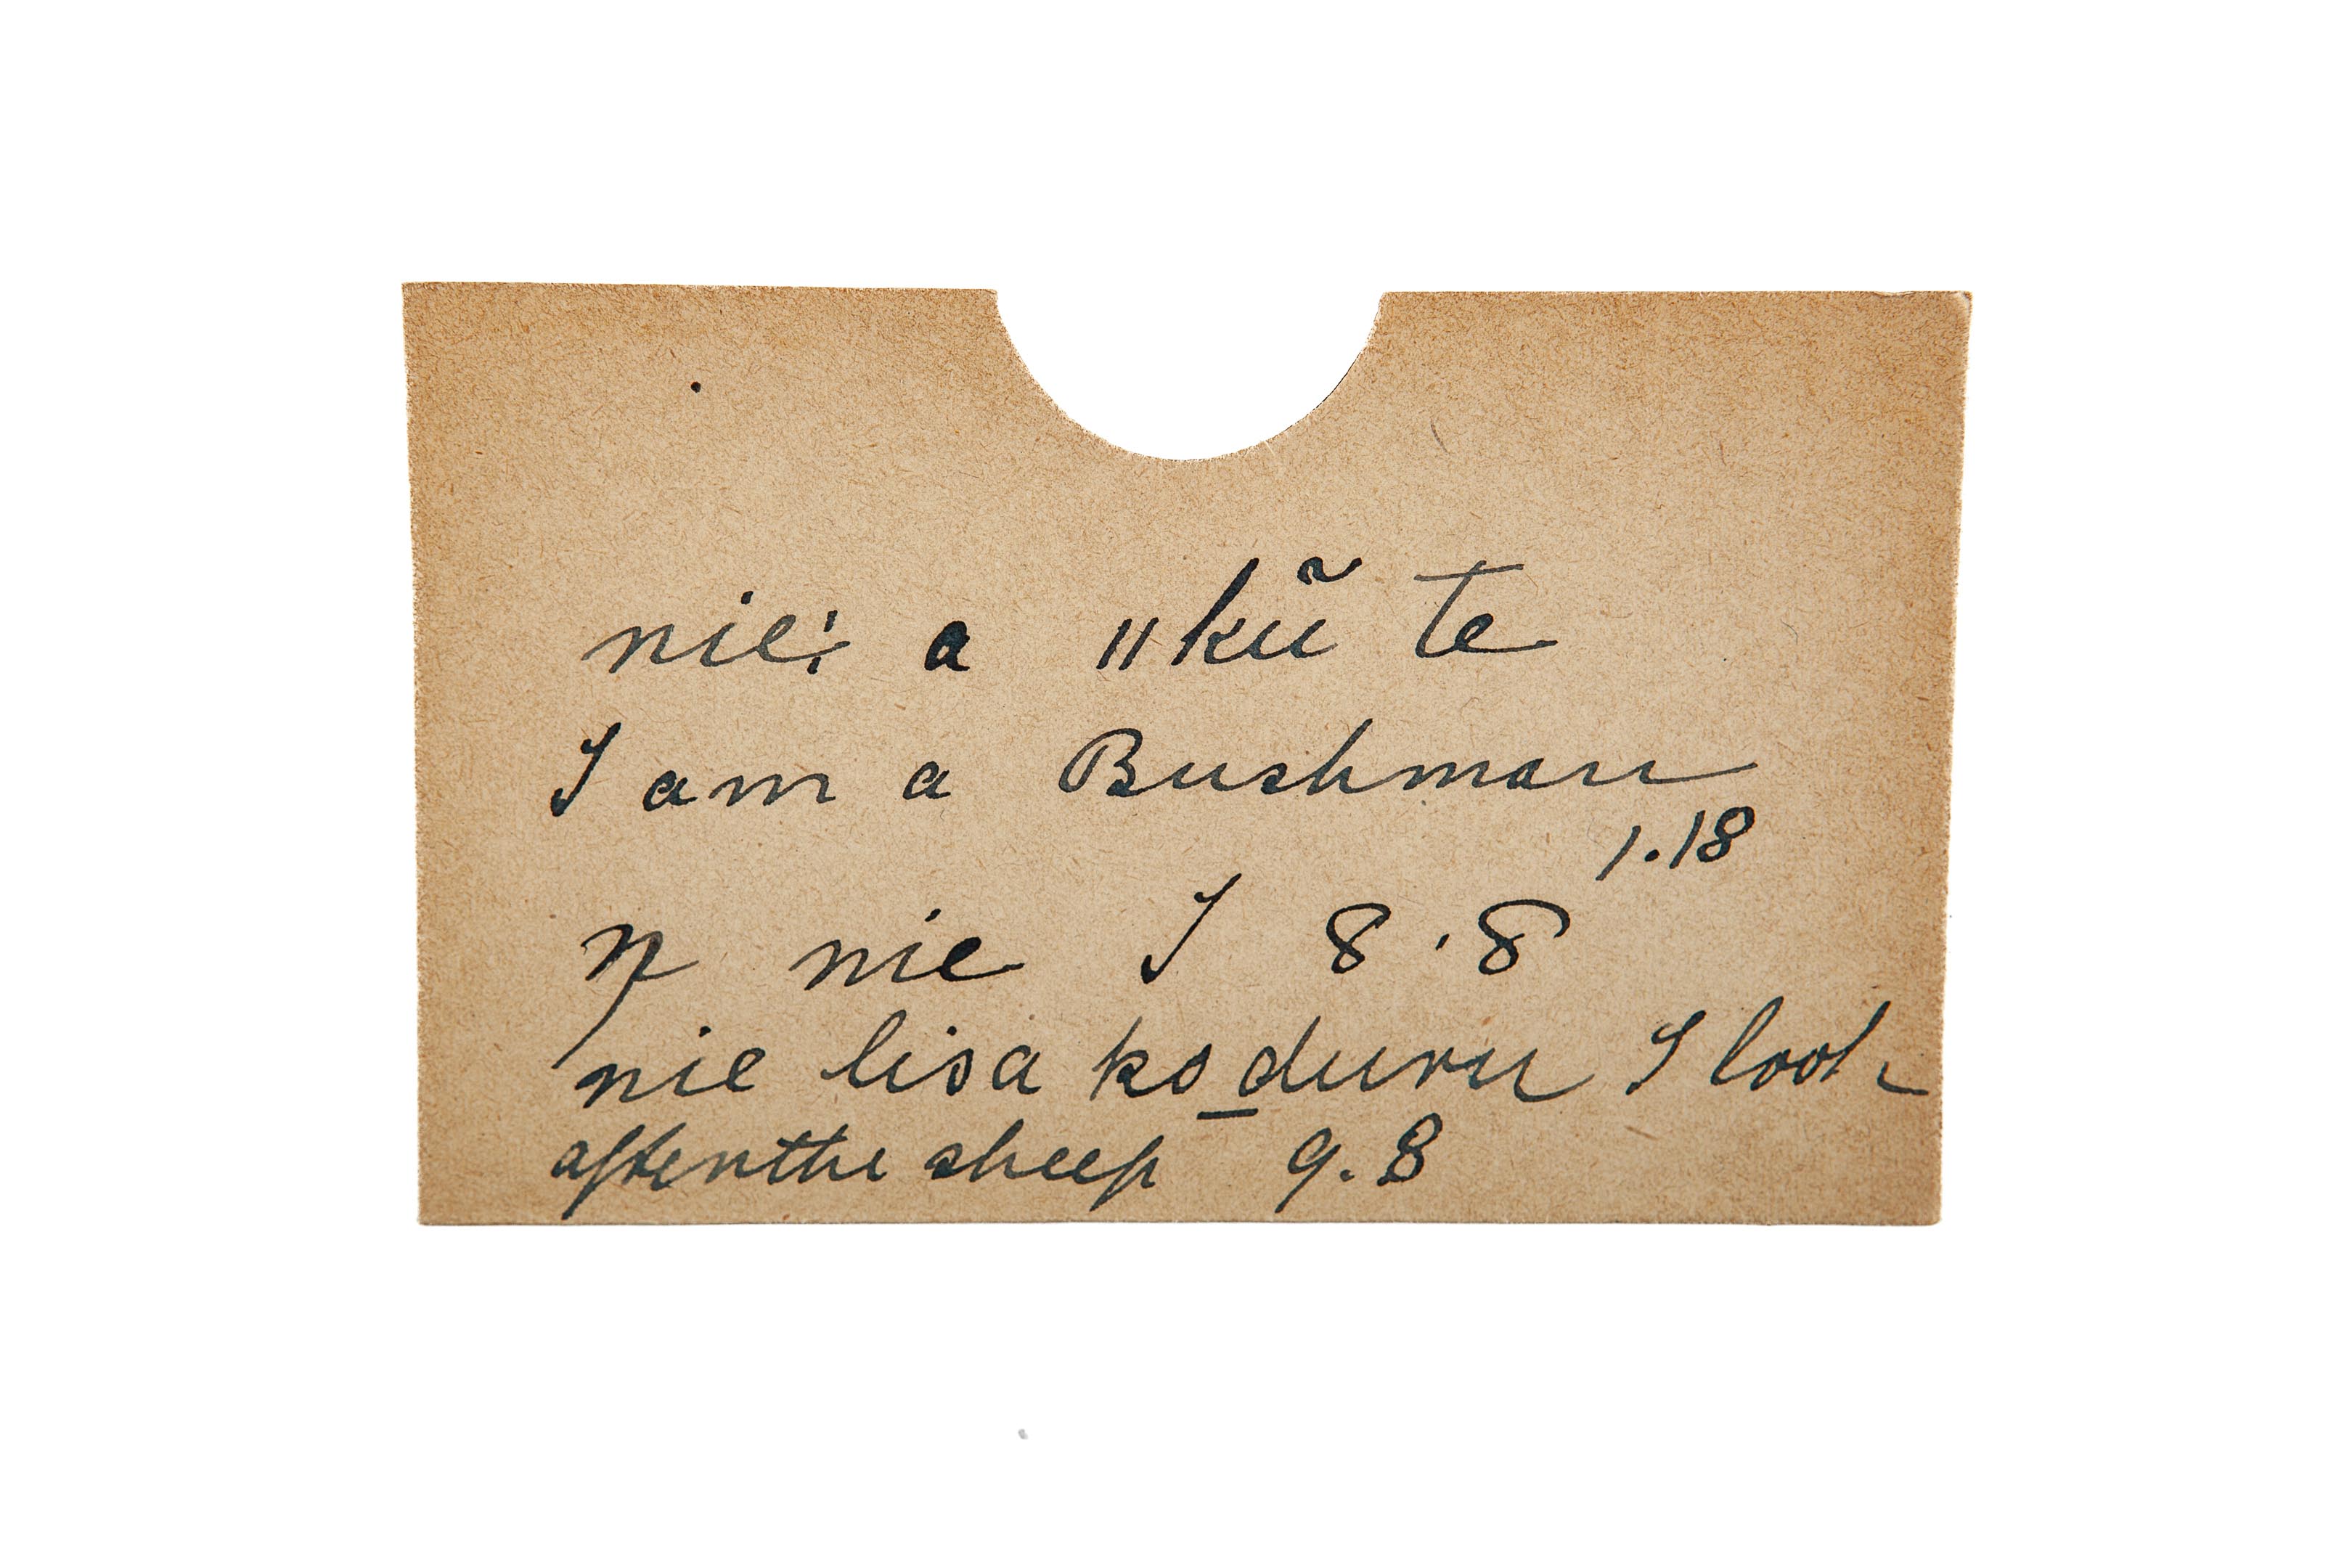 nie: a ǁkũ te
I am a Bushman
1.18
ŋ nie I 8.8
nie lisa ko duru I look
after the sheep 9.8